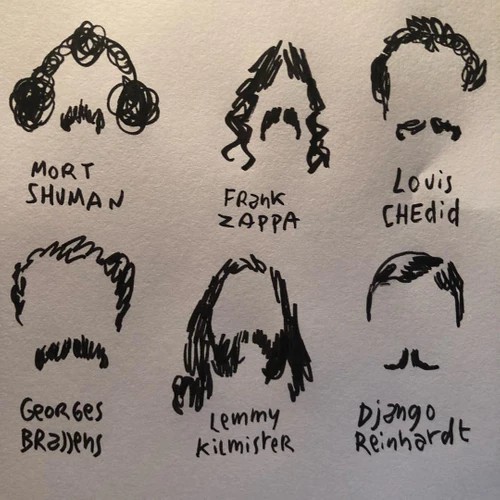 MORT
SHUMAN
FRanK
ZAPPA
LOUiS
CHEdid
GEORGES
BRASSENS
Lemmy
KiLMisTeR
DJanGO
Reinhardt